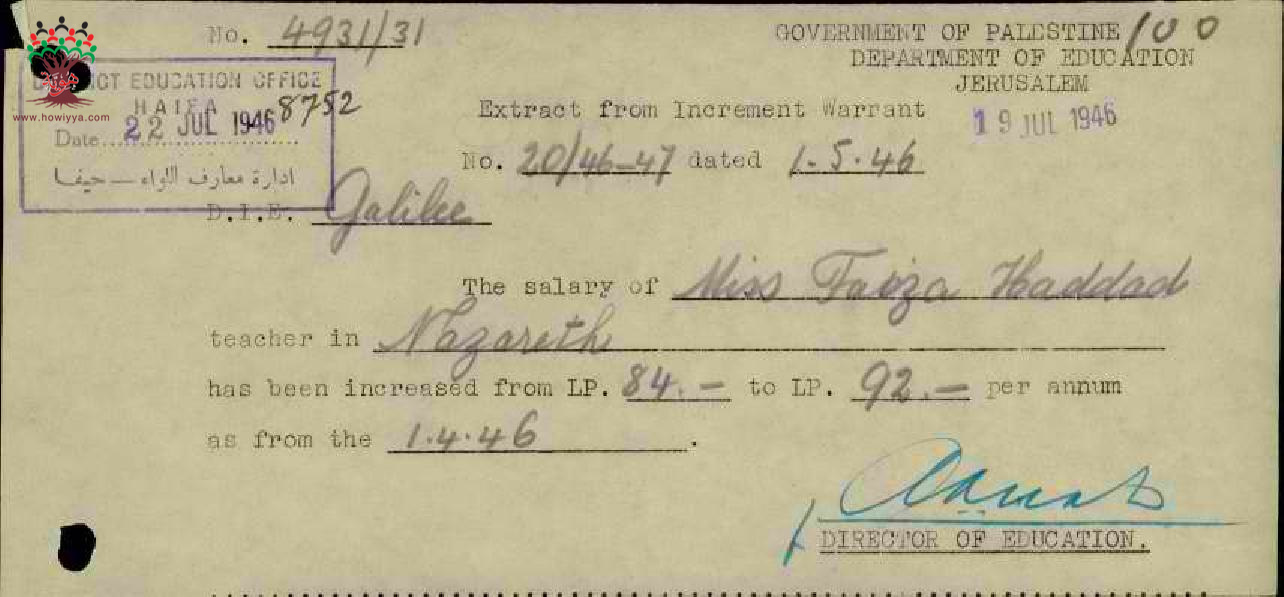 No. 4931/31
GOVERNMENT OF PALESTINE 100
DEPARTMENT OF EDUCATION
JERUSALEM
19 JUL 1946
هوية
www.howiyya.com
DISTRICT EDUCATION OFFICE
HAIFA
8752
Date 22 JUL 1946
ادارة معارف اللواء — حيفا
Extract from Increment Warrant
No. 20/46-47 dated 1.5.46
D.I.E. Galilee
The salary of Miss Faiza Haddad
teacher in Nazareth
has been increased from LP. 84.— to LP. 92.— per annum
as from the 1.4.46.
DIRECTOR OF EDUCATION.